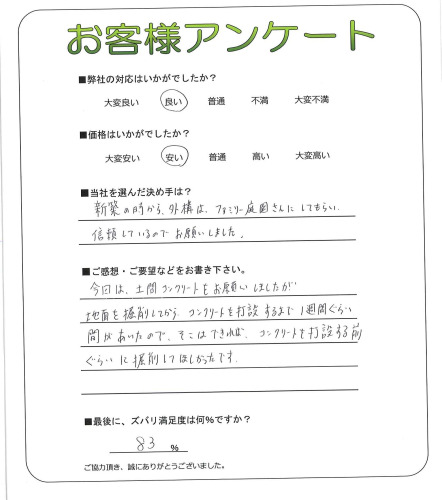 お客様アンケート
■弊社の対応はいかがでしたか？
大変良い 良い 普通 不満 大変不満
■価格はいかがでしたか？
大変安い 安い 普通 高い 大変高い
■当社を選んだ決め手は？
新築の時から、外構は、ファミリー庭園さんにしてもらい、
信頼しているのでお願いしました。
■ご感想・ご要望などをお書き下さい。
今回は、土間コンクリートをお願いしましたが
地面を掘削してから、コンクリートを打設するまで1週間ぐらい
間があいたので、そこはできれば、コンクリートを打設する前
ぐらいに掘削してほしかったです。
■最後に、ズバリ満足度は何％ですか？
83 ％
ご協力頂き、誠にありがとうございました。